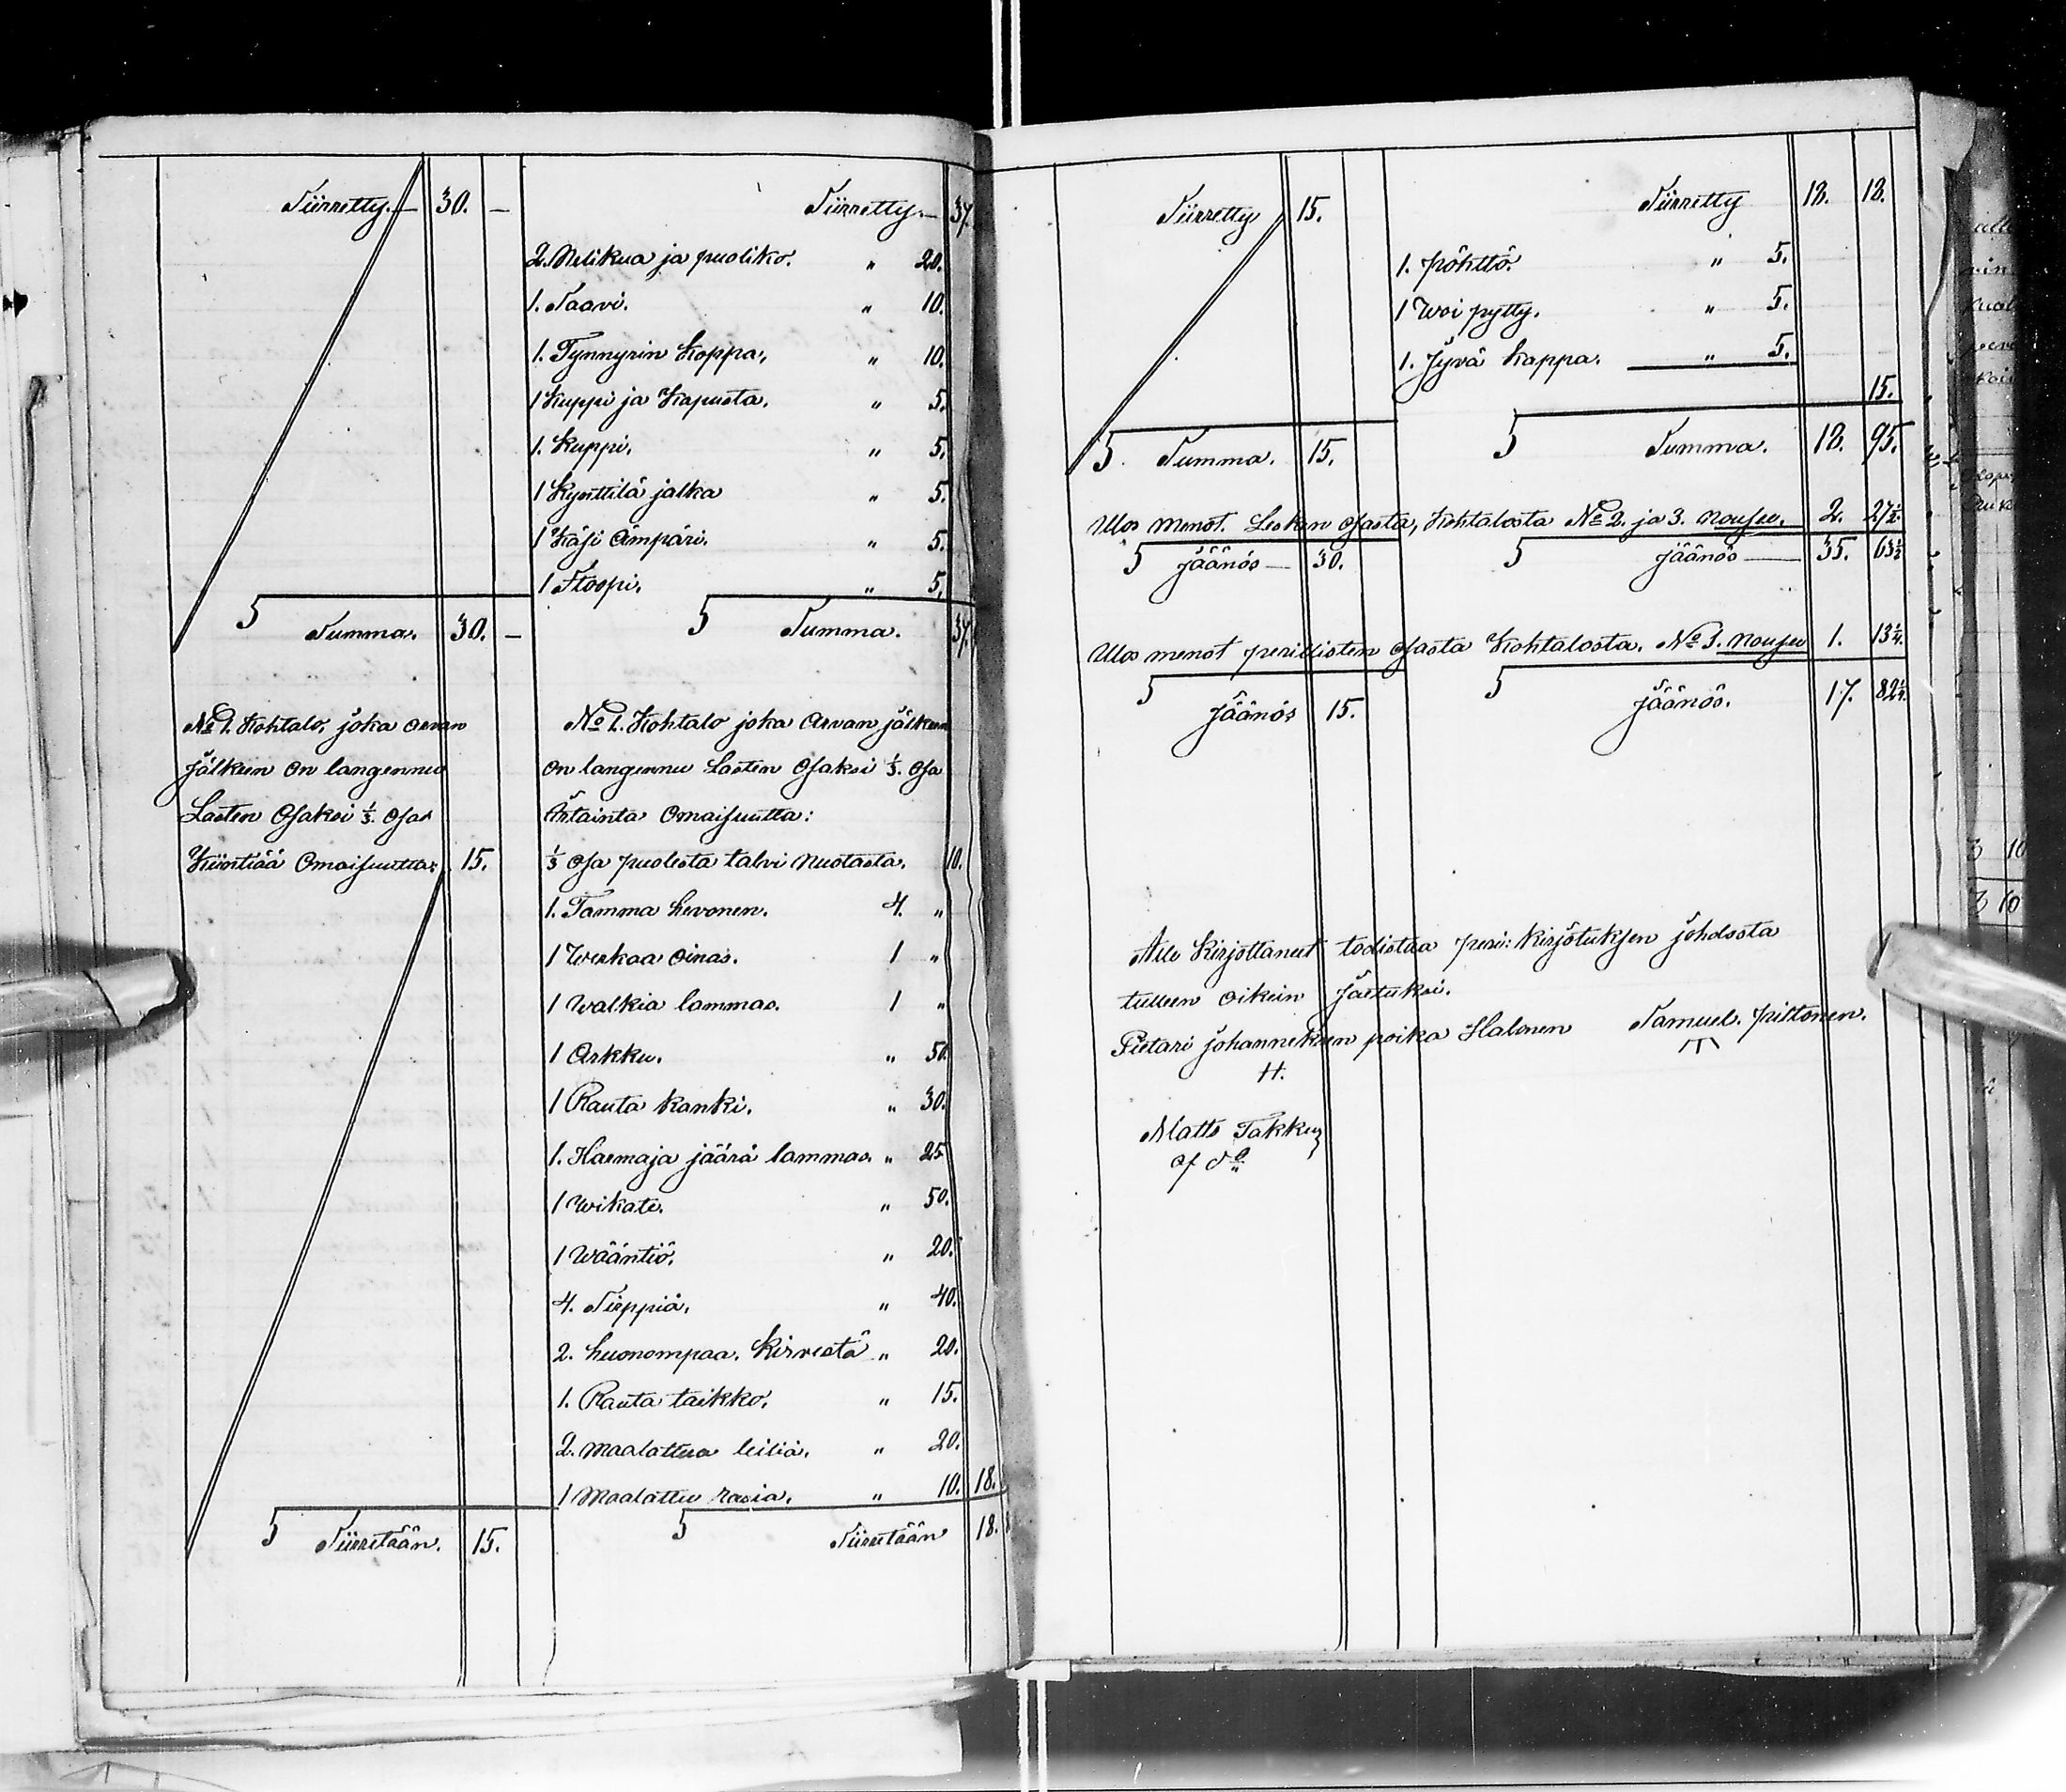 Siirretty. — 30. —
Siirretty. — 37.
2. Nelikua ja puoliko. „ 20.
1. Saavi. „ 10.
1. Tynnyrin koppa, „ 10.
1 Kuppi ja Kapusta. „ 5.
1. Kuppi. „ 5.
1 Kynttilä jalka „ 5.
1 Käsi ämpäri. „ 5.
1 Stoopi. „ 5.
Summa. 30. —
Summa. 37.
No 1. Kohtalo, joka arvan
jälkeen on langennu
Lasten Osaksi 1/3. Osa
Kiintiää Omaisuutta: 15.
No 1. Kohtalo joka Arvan jälkeen
on langennu Lasten Osaksi 1/3. Osa
Irtainta Omaisuutta:
1/3 Osa puolesta talvi nuotasta. 10.
1. Tamma hevonen. 4. „
1 Werkaa Oinas. 1 „
1 Walkia lammas. 1 „
1 Arkku. „ 50
1 Rauta kanki. „ 30.
1. Harmaja jäärä lammas. „ 25
1 Wikate. „ 50.
1 Wääntiö. „ 20.
4. Sirppiä. „ 40.
2. huonompaa. Kirvestä „ 20.
1. Rauta taikko. „ 15.
2. Maalattua leiliä. „ 20.
1 Maalattu rasia. „ 10. 18.
Siirretään. 15.
Siirretään 18.
Siirretty 15.
Siirretty 18. 18.
1. pöhttö. „ 5.
1 Woi pytty. „ 5.
1. Jyvä kappa. „ 5.
15.
Summa. 15.
Summa. 18. 95.
Ulos menot. Lesken Osasta, Kohtalosta No 2. ja 3. nousee. 2. 27 1/2.
jäänös — 30.
jäänös — 35. 63 1/2
Ulos menot perillisten Osasta Kohtalosta. No 1. nousee 1. 13 3/4.
jäänös 15.
jäänös. 17. 82 1/4.
Alle Kirjottaneet todistaa peri: Kirjotuksen johdosta
tulleen oikein Jaetuksi.
Pietari johanneksen poika Halonen Samuel. pittonen.
H.
Matts Takkun
af do